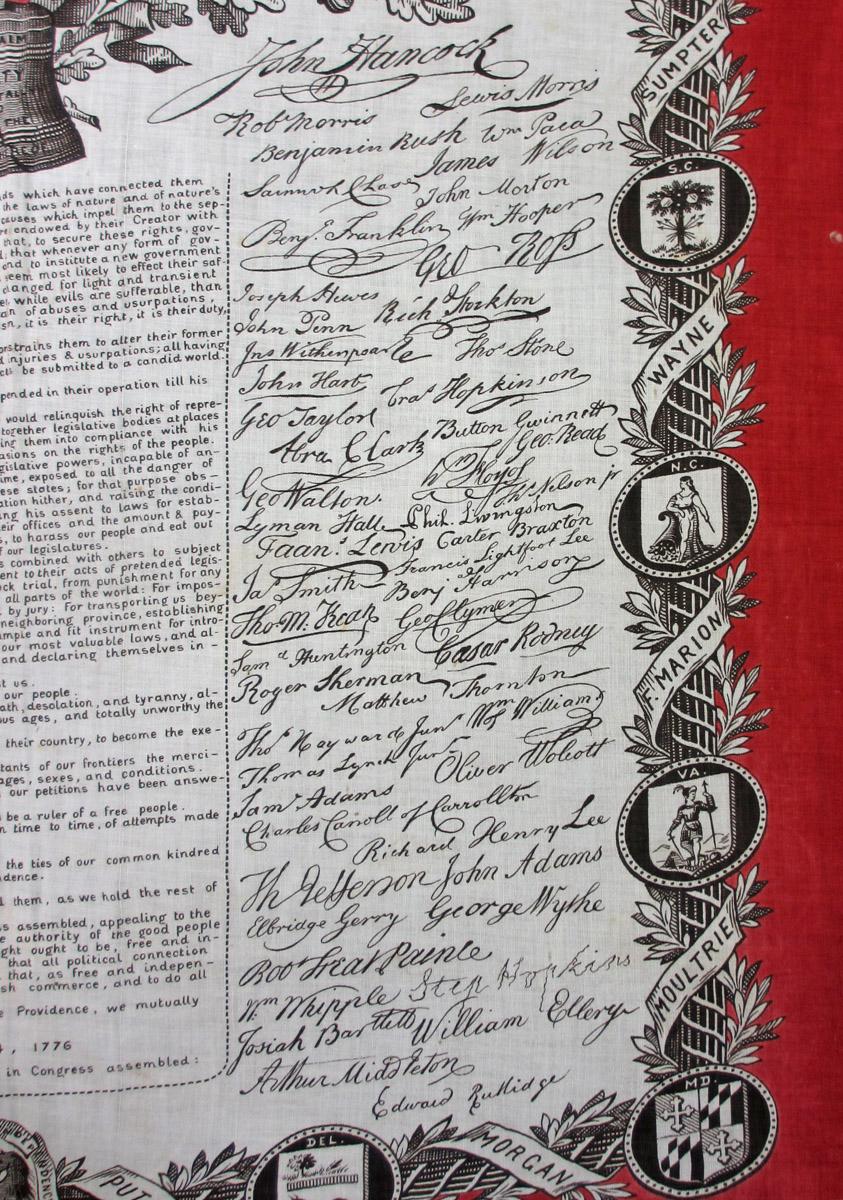 LAIM
TY
THE
ds which have connected them
the laws of nature and of nature's
causes which impel them to the sep-
endowed by their Creator with
that, to secure these rights, gov-
that whenever any form of gov-
end to institute a new government
seem most likely to effect their saf-
danged for light and transient
while evils are sufferable, than
an of abuses and usurpations,
sn, it is their right, it is their duty,
nstrains them to alter their former
d injuries & usurpations; all having
be submitted to a candid world.
pended in their operation till his
would relinquish the right of repre-
together legislative bodies at places
ing them into compliance with his
asions on the rights of the people.
gislative powers, incapable of an-
ime, exposed to all the danger of
ese states; for that purpose obs-
ation hither, and raising the condi-
ng his assent to laws for estab-
eir offices and the amount & pay-
s, to harass our people and eat out
f our legislatures.
s combined with others to subject
ent to their acts of pretended legis-
ck trial, from punishment for any
all parts of the world: For impos-
by jury: For transporting us bey-
neighboring province, establishing
ample and fit instrument for intro-
our most valuable laws, and al-
and declaring themselves in-
st us.
our people.
ath, desolation, and tyranny, al-
ous ages, and totally unworthy the
their country, to become the exe-
tants of our frontiers the merci-
ages, sexes, and conditions.
our petitions have been answe-
be a ruler of a free people.
n time to time, of attempts made
the ties of our common kindred
dence.
them, as we hold the rest of
ss assembled, appealing to the
e authority of the good people
ght ought to be, free and in-
that all political connection
that, as free and indepen-
sh commerce, and to do all
e Providence, we mutually
4, 1776
in Congress assembled:
John Hancock
Robt Morris Lewis Morris
Benjamin Rush Wm Paca
James Wilson
Samuel Chase John Morton
Benj. Franklin Wm Hooper
Geo Ross
Joseph Hewes
John Penn Rich Stockton
Jno Witherspoon Thos Stone
John Hart Fras Hopkinson
Geo Taylor
Abra Clark Button Gwinnett
Geo. Read
Geo Walton. Wm Floyd
Thos Nelson jr
Lyman Hall Phil. Livingston
Faans Lewis Carter Braxton
Francis Lightfoot Lee
Jas Smith Benj Harrison
Tho M. Kean Geo Clymer
Samd Huntington Casar Rodney
Roger Sherman
Matthew Thornton
Thos Hayward Junr Wm Williams
Thomas Lynch Junr
Oliver Wolcott
Saml Adams
Charles Carroll of Carrollton
Richard Henry Lee
Th Jefferson John Adams
Elbridge Gerry George Wythe
Robt Treat Painle
Wm Whipple Step Hopkins
Josiah Bartlett William Ellery
Arthur Middleton
Edward Rutlidge
SUMPTER
S.C.
WAYNE
N.C.
F. MARION
VA.
MOULTRIE
MD.
MORGAN
DEL.
PUT